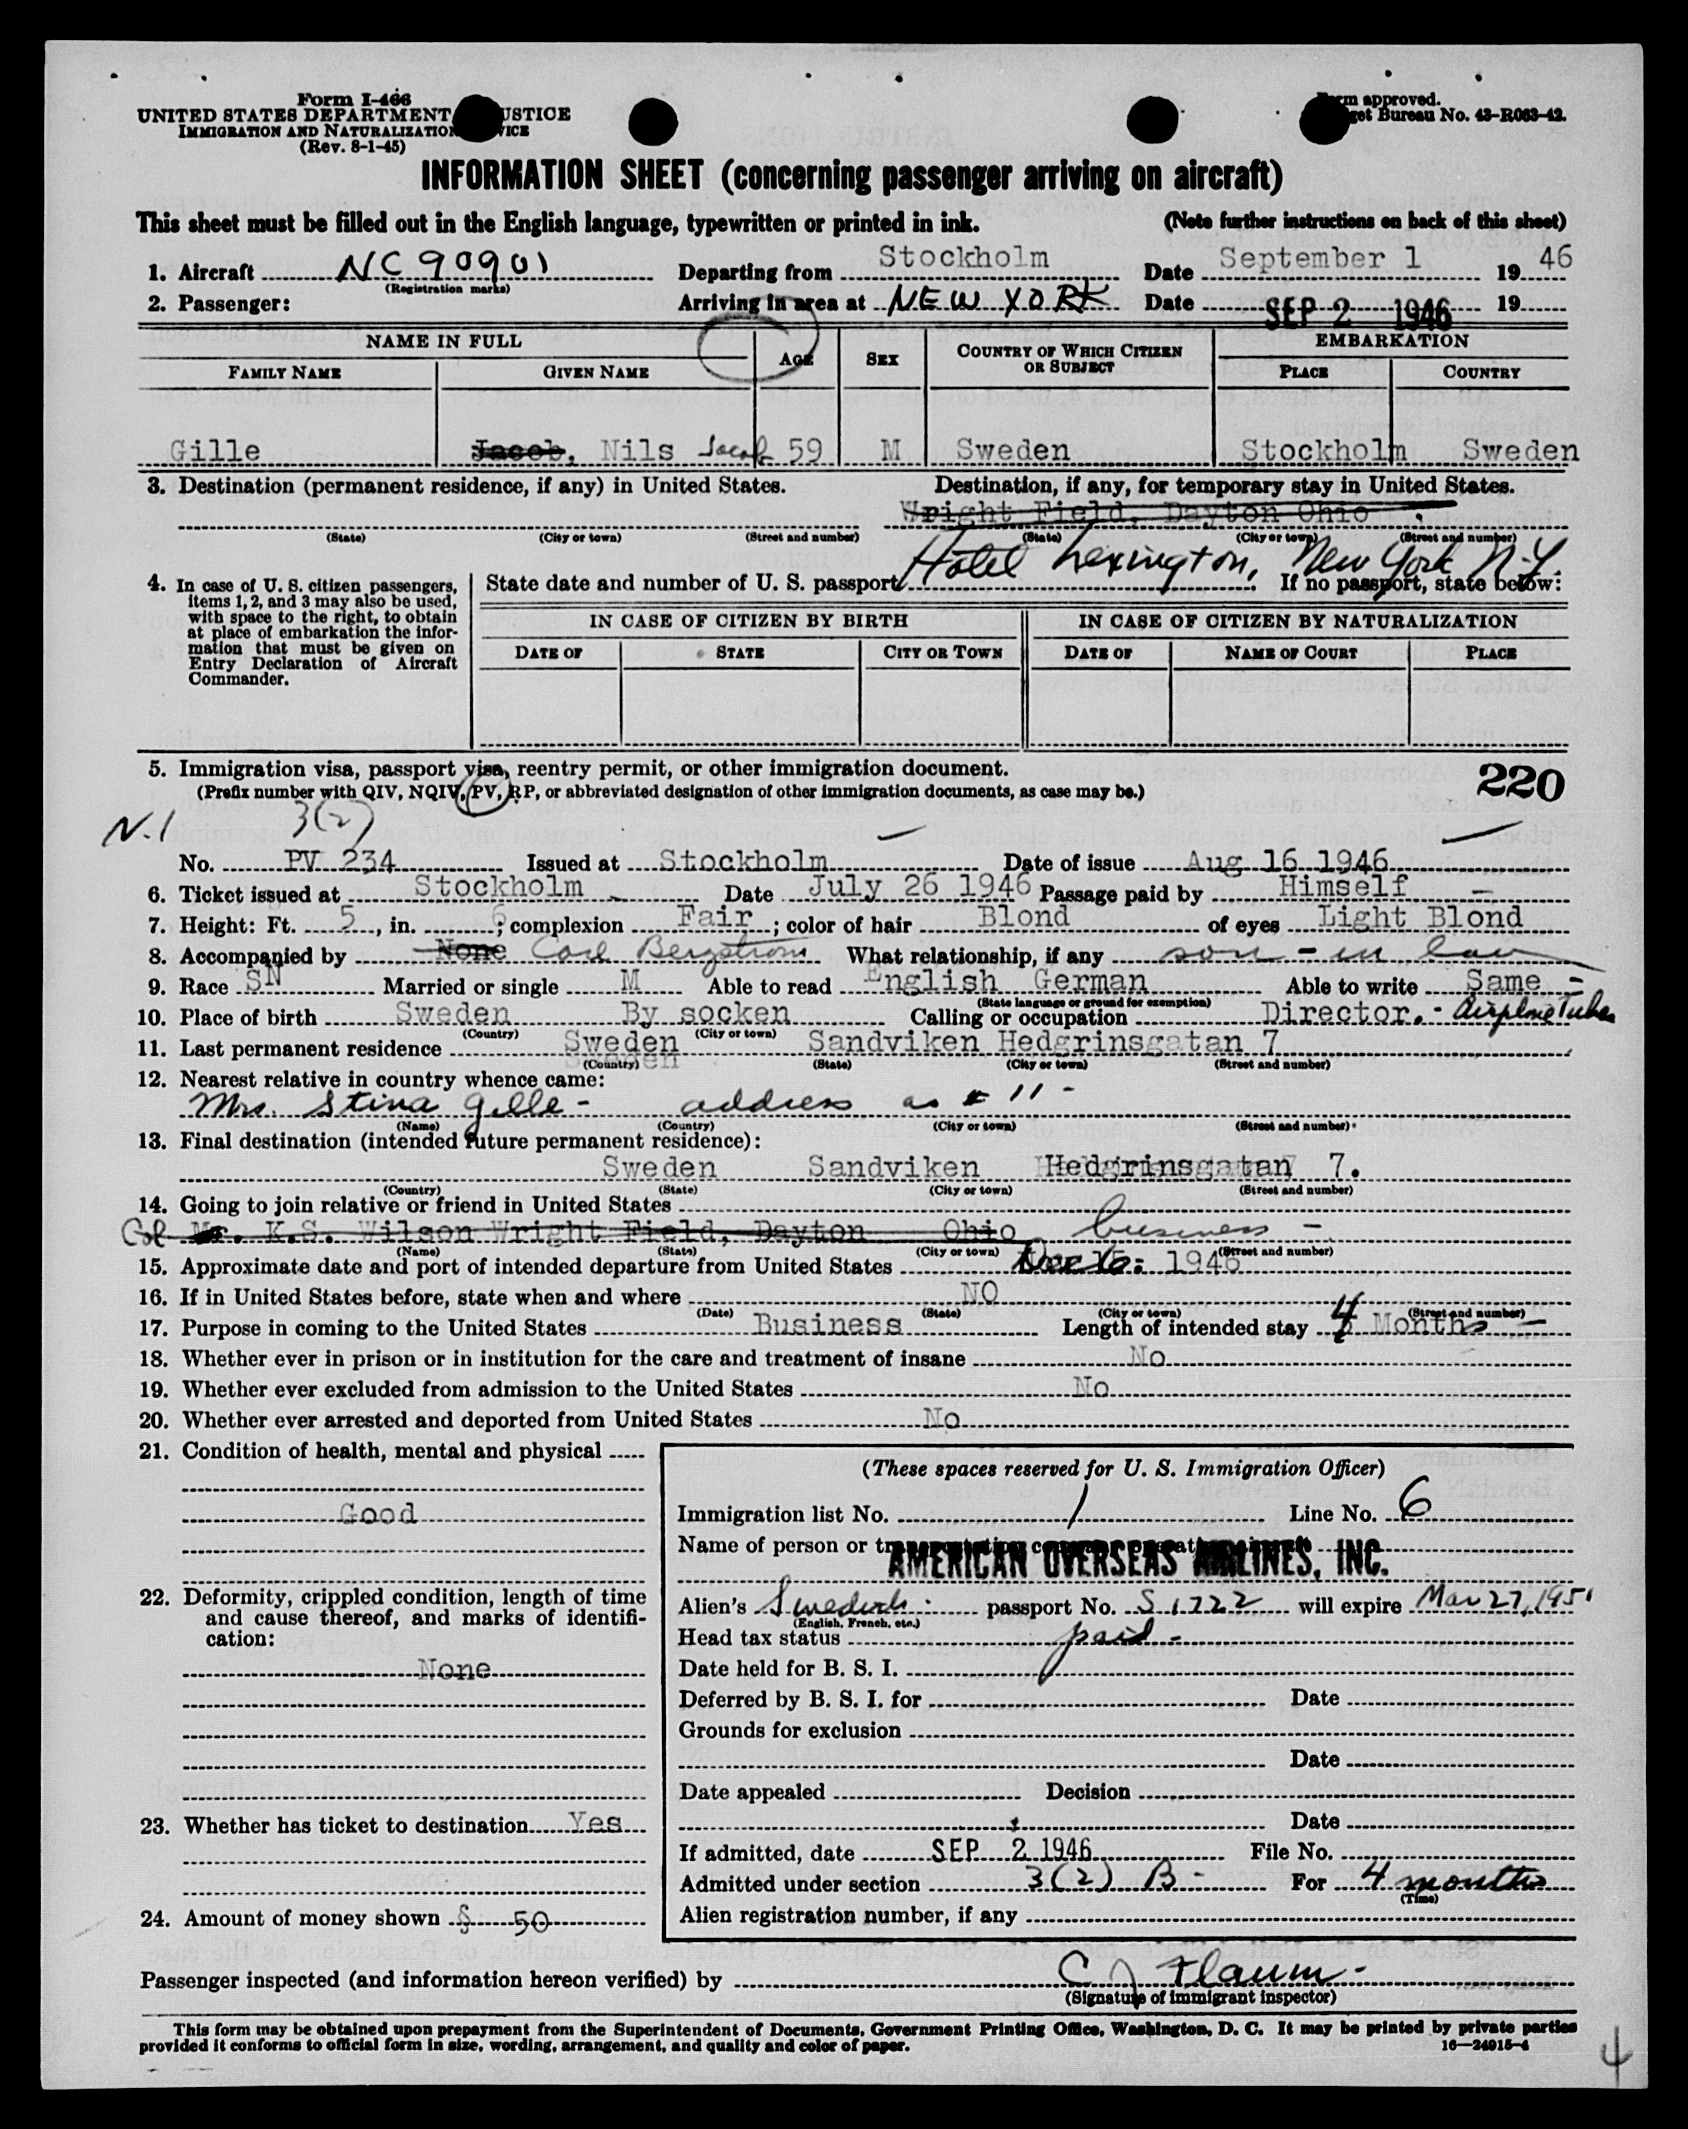 Form I-466
UNITED STATES DEPARTMENT JUSTICE
IMMIGRATION AND NATURALIZATION SERVICE
(Rev. 8-1-45)
Form approved.
Budget Bureau No. 43-R063-42.
INFORMATION SHEET (concerning passenger arriving on aircraft)
This sheet must be filled out in the English language, typewritten or printed in ink. (Note further instructions on back of this sheet)
1. Aircraft NC90901 Departing from Stockholm Date September 1 1946
(Registration marks)
2. Passenger: Arriving in area at NEW YORK Date SEP 2 1946 19
NAME IN FULL AGE SEX COUNTRY OF WHICH CITIZEN OR SUBJECT EMBARKATION
FAMILY NAME GIVEN NAME PLACE COUNTRY
Gille Jacob, Nils Jacob 59 M Sweden Stockholm Sweden
3. Destination (permanent residence, if any) in United States. Destination, if any, for temporary stay in United States.
Wright Field, Dayton Ohio
(State) (City or town) (Street and number) (State) (City or town) (Street and number)
Hotel Lexington, New York N.Y.
4. In case of U. S. citizen passengers, items 1, 2, and 3 may also be used, with space to the right, to obtain at place of embarkation the information that must be given on Entry Declaration of Aircraft Commander.
State date and number of U. S. passport If no passport, state below:
IN CASE OF CITIZEN BY BIRTH IN CASE OF CITIZEN BY NATURALIZATION
DATE OF STATE CITY OR TOWN DATE OF NAME OF COURT PLACE
5. Immigration visa, passport visa, reentry permit, or other immigration document.
(Prefix number with QIV, NQIV, PV, RP, or abbreviated designation of other immigration documents, as case may be.)
220
N.1 3(2)
No. PV 234 Issued at Stockholm Date of issue Aug 16 1946
6. Ticket issued at Stockholm Date July 26 1946 Passage paid by Himself
7. Height: Ft. 5, in. 6; complexion Fair; color of hair Blond of eyes Light Blond
8. Accompanied by None Carl Bergstrom What relationship, if any son-in law
9. Race SN Married or single M Able to read English German Able to write Same -
(State language or ground for exemption)
10. Place of birth Sweden By socken Calling or occupation Director. - Airplane Tubes
(Country) (City or town)
11. Last permanent residence Sweden Sandviken Hedgrinsgatan 7
(Country) (State) (City or town) (Street and number)
12. Nearest relative in country whence came:
Mrs. Stina Gille - address as # 11 -
(Name) (Country) (City or town) (Street and number)
13. Final destination (intended future permanent residence):
Sweden Sandviken Hedgrinsgatan 7.
(Country) (State) (City or town) (Street and number)
14. Going to join relative or friend in United States
Col Mr. K.S. Wilson Wright Field, Dayton Ohio business -
(Name) (State) (City or town) (Street and number)
15. Approximate date and port of intended departure from United States Dec 1946
16. If in United States before, state when and where NO
(Date) (State) (City or town) (Street and number)
17. Purpose in coming to the United States Business Length of intended stay 4 Months -
18. Whether ever in prison or in institution for the care and treatment of insane No
19. Whether ever excluded from admission to the United States No
20. Whether ever arrested and deported from United States No
21. Condition of health, mental and physical
Good
22. Deformity, crippled condition, length of time and cause thereof, and marks of identification:
None
23. Whether has ticket to destination Yes
24. Amount of money shown $ 50
(These spaces reserved for U. S. Immigration Officer)
Immigration list No. 1 Line No. 6
Name of person or transportation company operating aircraft
AMERICAN OVERSEAS AIRLINES, INC.
Alien's Swedish passport No. S 1722 will expire Mar 27, 1951
(English, French, etc.)
Head tax status paid -
Date held for B. S. I.
Deferred by B. S. I. for Date
Grounds for exclusion
Date
Date appealed Decision
Date
If admitted, date SEP 2 1946 File No.
Admitted under section 3(2) B - For 4 months
(Time)
Alien registration number, if any
Passenger inspected (and information hereon verified) by C J Flaum -
(Signature of immigrant inspector)
This form may be obtained upon prepayment from the Superintendent of Documents, Government Printing Office, Washington, D. C. It may be printed by private parties
provided it conforms to official form in size, wording, arrangement, and quality and color of paper. 16—24915-4
4